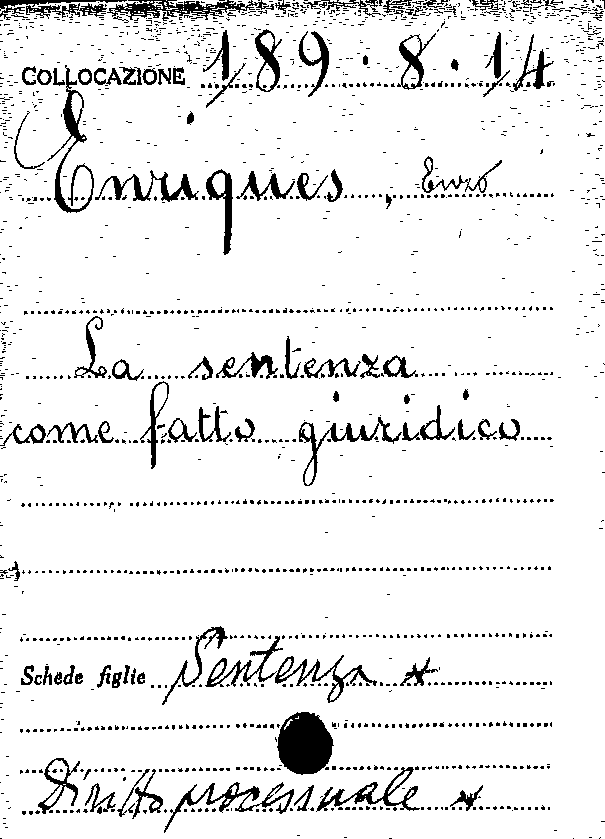 COLLOCAZIONE 189.8.14
Enriques, Enzo
La sentenza
come fatto giuridico
Schede figlie Sentenza *
Diritto processuale *